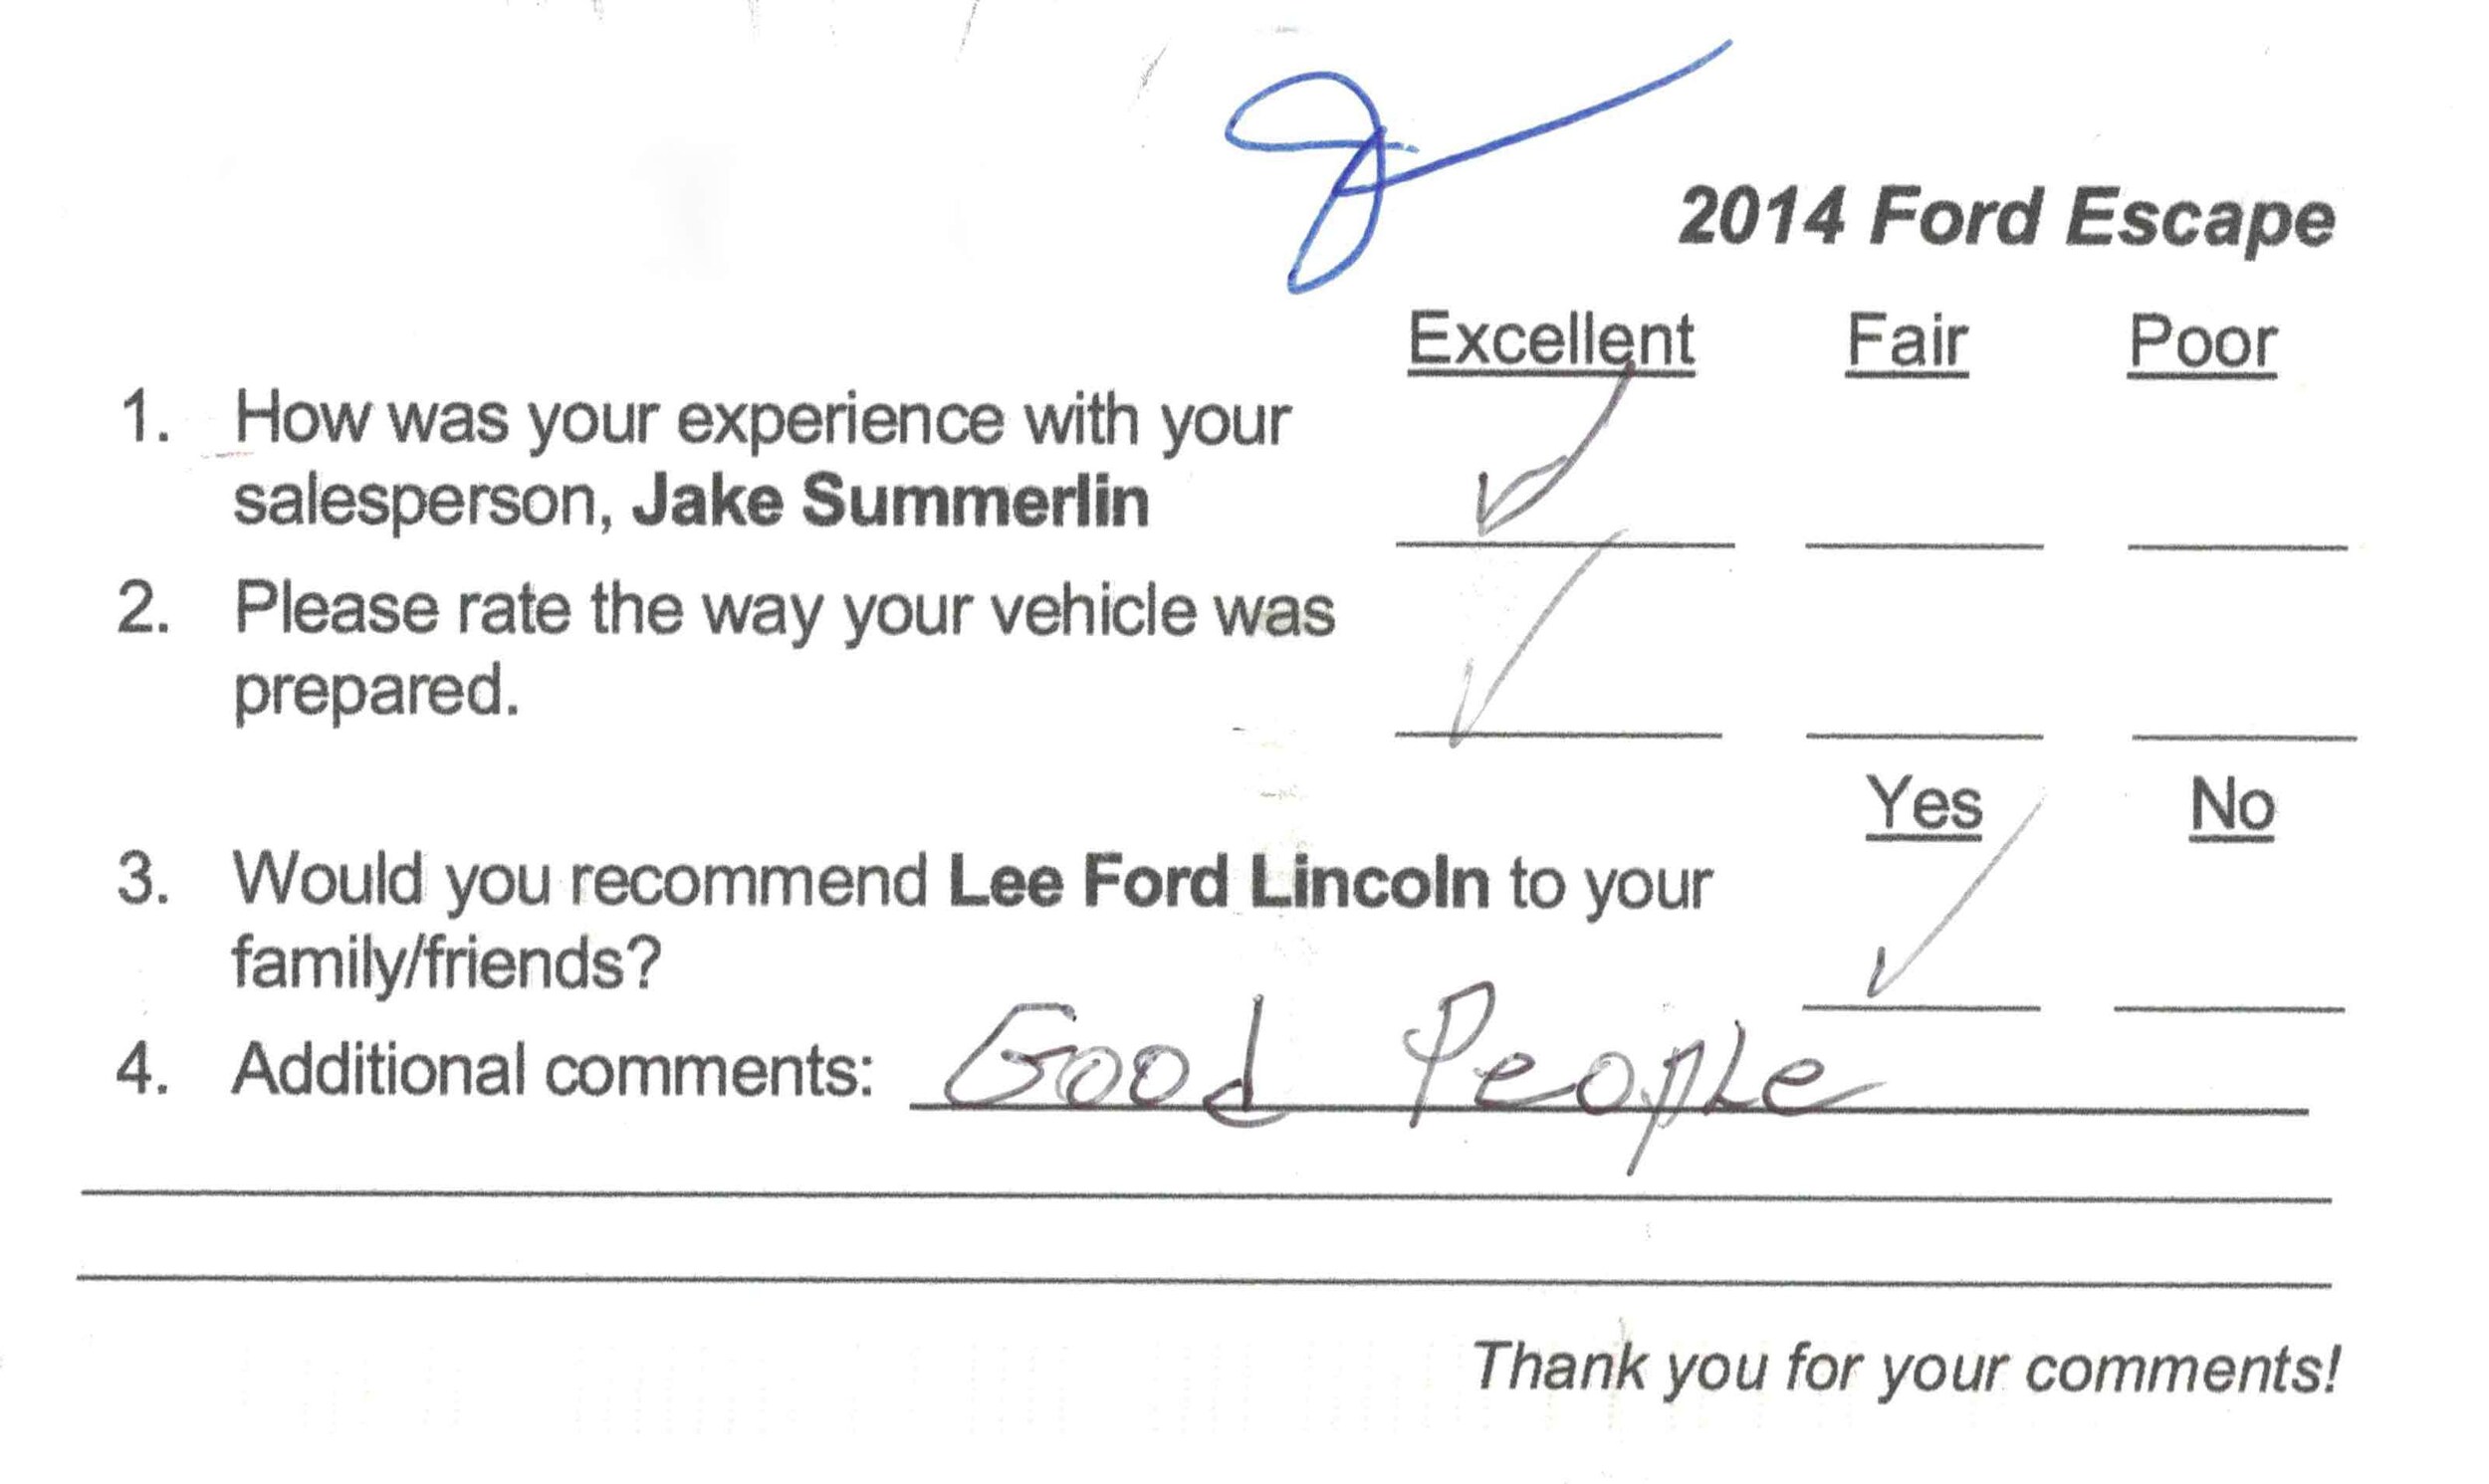 2014 Ford Escape
Excellent Fair Poor
1. How was your experience with your
salesperson, Jake Summerlin
2. Please rate the way your vehicle was
prepared.
Yes No
3. Would you recommend Lee Ford Lincoln to your
family/friends?
4. Additional comments: Good People
Thank you for your comments!